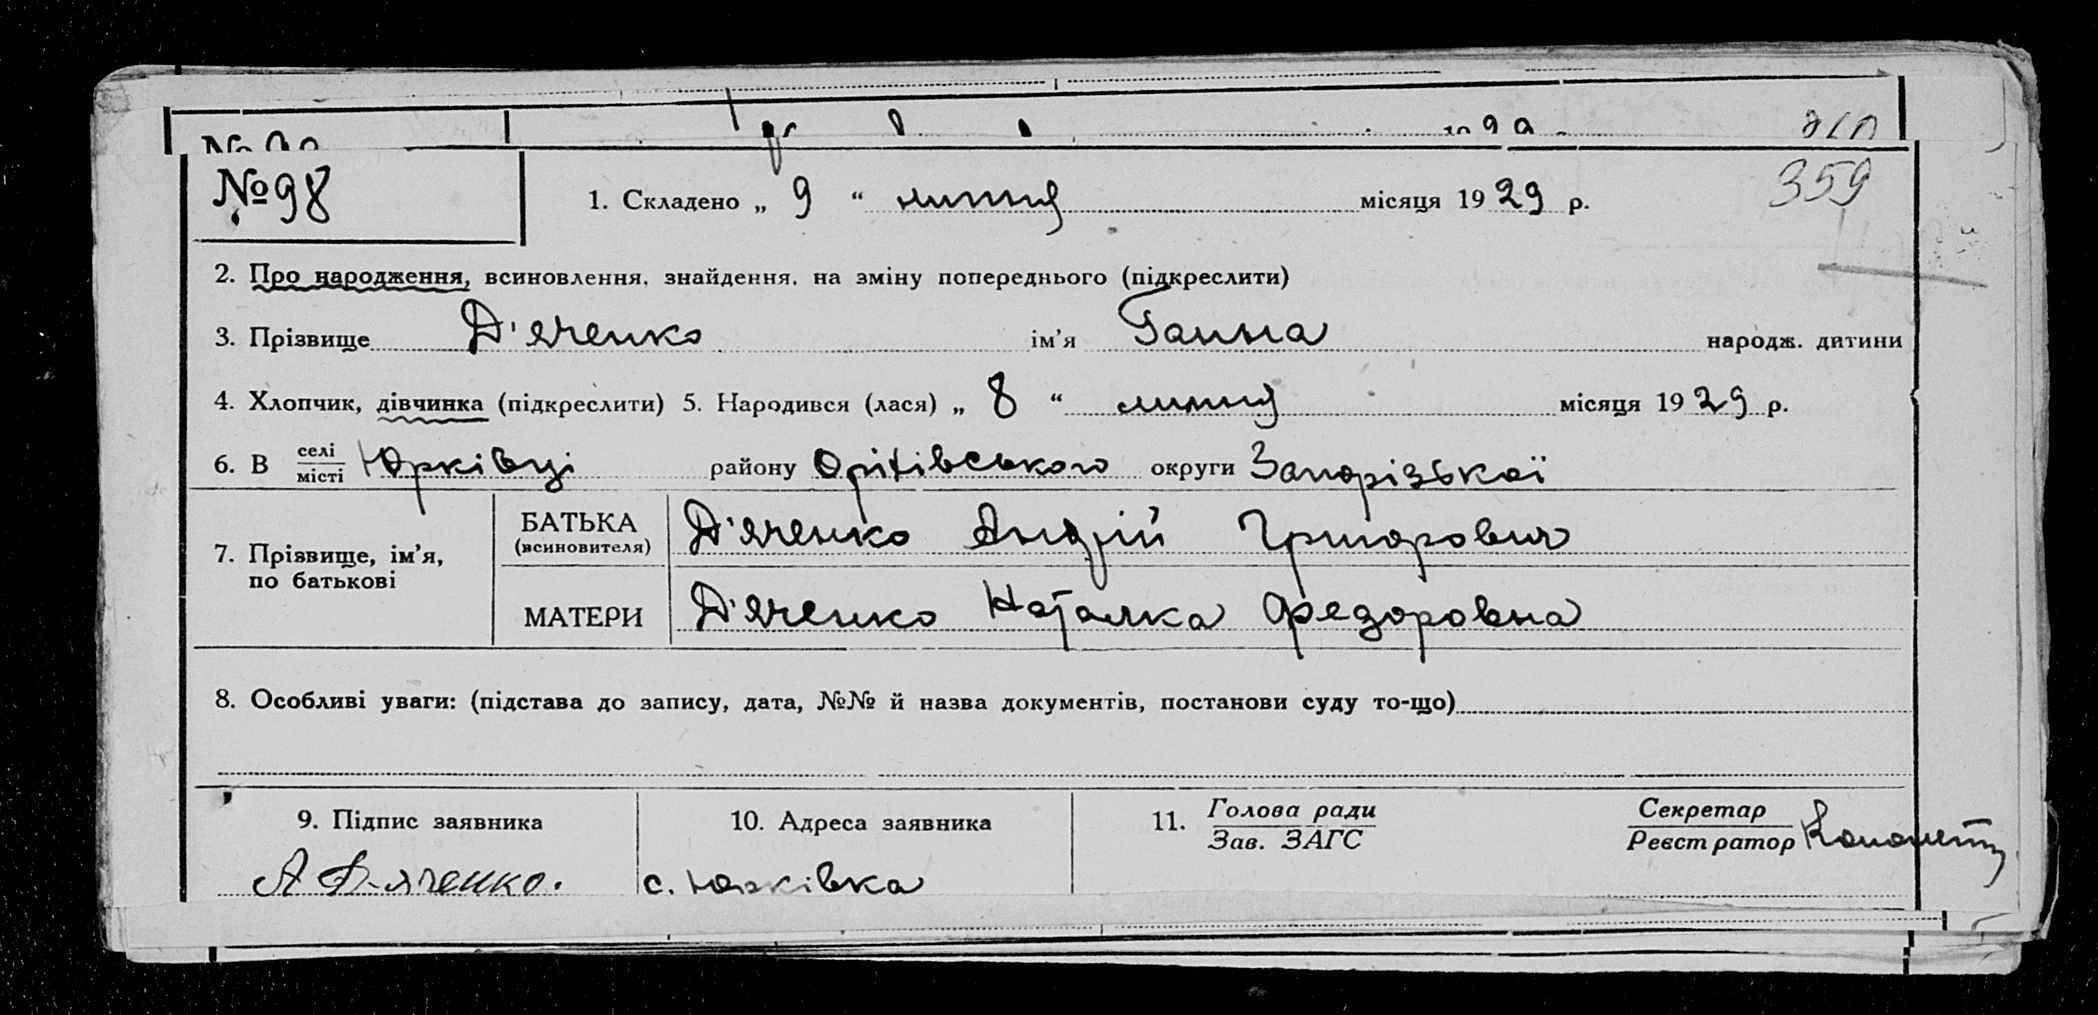 № 98
1. Складено „ 9 “ липня місяця 1929 р.
359
2. Про народження, всиновлення, знайдення, на зміну попереднього (підкреслити)
3. Прізвище Д'яченко ім'я Ганна народж. дитини
4. Хлопчик, дівчинка (підкреслити) 5. Народився (лася) „ 8 “ липня місяця 1929 р.
6. В селі/місті Юрківці району Оріхівського округи Запорізької
7. Прізвище, ім'я, по батькові
БАТЬКА (всиновителя) Д'яченко Андрій Григорович
МАТЕРИ Д'яченко Наталка Федоровна
8. Особливі уваги: (підстава до запису, дата, №№ й назва документів, постанови суду то-що)
9. Підпис заявника
10. Адреса заявника
11. Голова ради / Зав. ЗАГС
Секретар / Реєстратор
А Дьяченко.
с. Юрківка